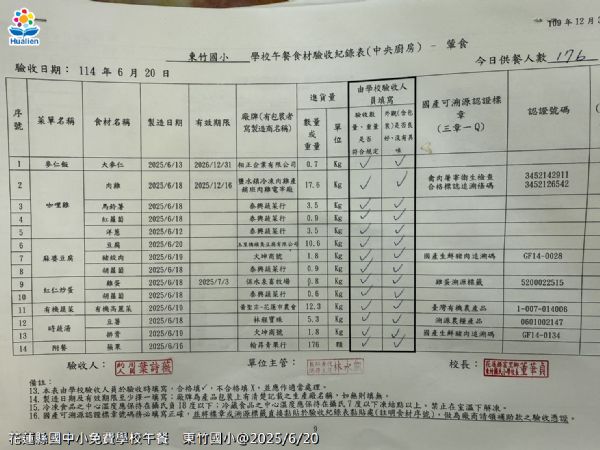 Hualien
109年12月3
東竹國小 學校午餐食材驗收紀錄表(中央廚房) - 葷食
驗收日期： 114 年 6 月 20 日
今日供餐人數 176
序號 菜單名稱 食材名稱 製造日期 有效期限 廠牌(有包裝者寫製造商名稱) 進貨量 數量或重量 單位 由學校驗收人員填寫 驗收數量、重量是否符合規定 外觀(含包裝)是否良好、沒有異味 國產可溯源認證標章(三章一Q) 認證號碼
1 麥仁飯 大麥仁 2025/6/13 2026/12/31 相正企業有限公司 0.7 Kg ✓ ✓
2 咖哩雞 肉雞 2025/6/18 2025/12/16 17.6 Kg ✓ ✓ 禽肉屠宰衛生檢查合格標誌追溯條碼 3452142911 3452126542
3 馬鈴薯 2025/6/18 泰興蔬菜行 3.5 Kg ✓ ✓
4 紅蘿蔔 2025/6/18 泰興蔬菜行 0.9 Kg ✓ ✓
5 洋蔥 2025/6/12 泰興蔬菜行 3.5 Kg ✓ ✓
6 麻婆豆腐 豆腐 2025/6/20 10.6 Kg ✓ ✓
7 豬絞肉 2025/6/19 大坤商號 1.8 Kg ✓ ✓ 國產生鮮豬肉追溯碼 GF14-0028
8 胡蘿蔔 2025/6/18 泰興蔬菜行 0.9 Kg ✓ ✓
9 紅仁炒蛋 雞蛋 2025/6/19 2025/7/3 保水泉畜牧場 0.8 Kg ✓ ✓ 雞蛋溯源標籤 5200022515
10 胡蘿蔔 2025/6/18 泰興蔬菜行 0.6 Kg ✓ ✓
11 有機蔬菜 有機高麗菜 2025/6/19 黃聖宗-花蓮市農會 12.3 Kg ✓ ✓ 臺灣有機農產品 1-007-014006
12 時蔬湯 豆薯 2025/6/18 林程寶珠 5.3 Kg ✓ ✓ 溯源農糧產品 0601002147
13 排骨 2025/6/19 大坤商號 1.8 Kg ✓ ✓ 國產生鮮豬肉追溯碼 GF14-0134
14 附餐 蘋果 2025/6/19 翰昇青果行 176 顆 ✓ ✓
驗收人： 單位主管： 校長：
備註：
13.本表由學校驗收人員於驗收時填寫，合格填✓，不合格填X，並應作適當處理。
14.製造日期及有效期限至少擇一填寫；廠牌為產品包裝上有清楚記載之生產廠名稱，如無則填無。
15.冷凍食品之中心溫度應保持在攝氏負18度以下；冷藏食品之中心溫度應保持在攝氏7度以下凍結點以上，禁止在室溫下解凍。
16.國產可溯源認證標章號碼務必填寫正確，並將標章或溯源標籤直接黏貼於驗收紀錄表黏貼處(註明食材序號)，做為廠商請領補助款之驗收憑證。
9
花蓮縣國中小免費學校午餐 東竹國小@2025/6/20